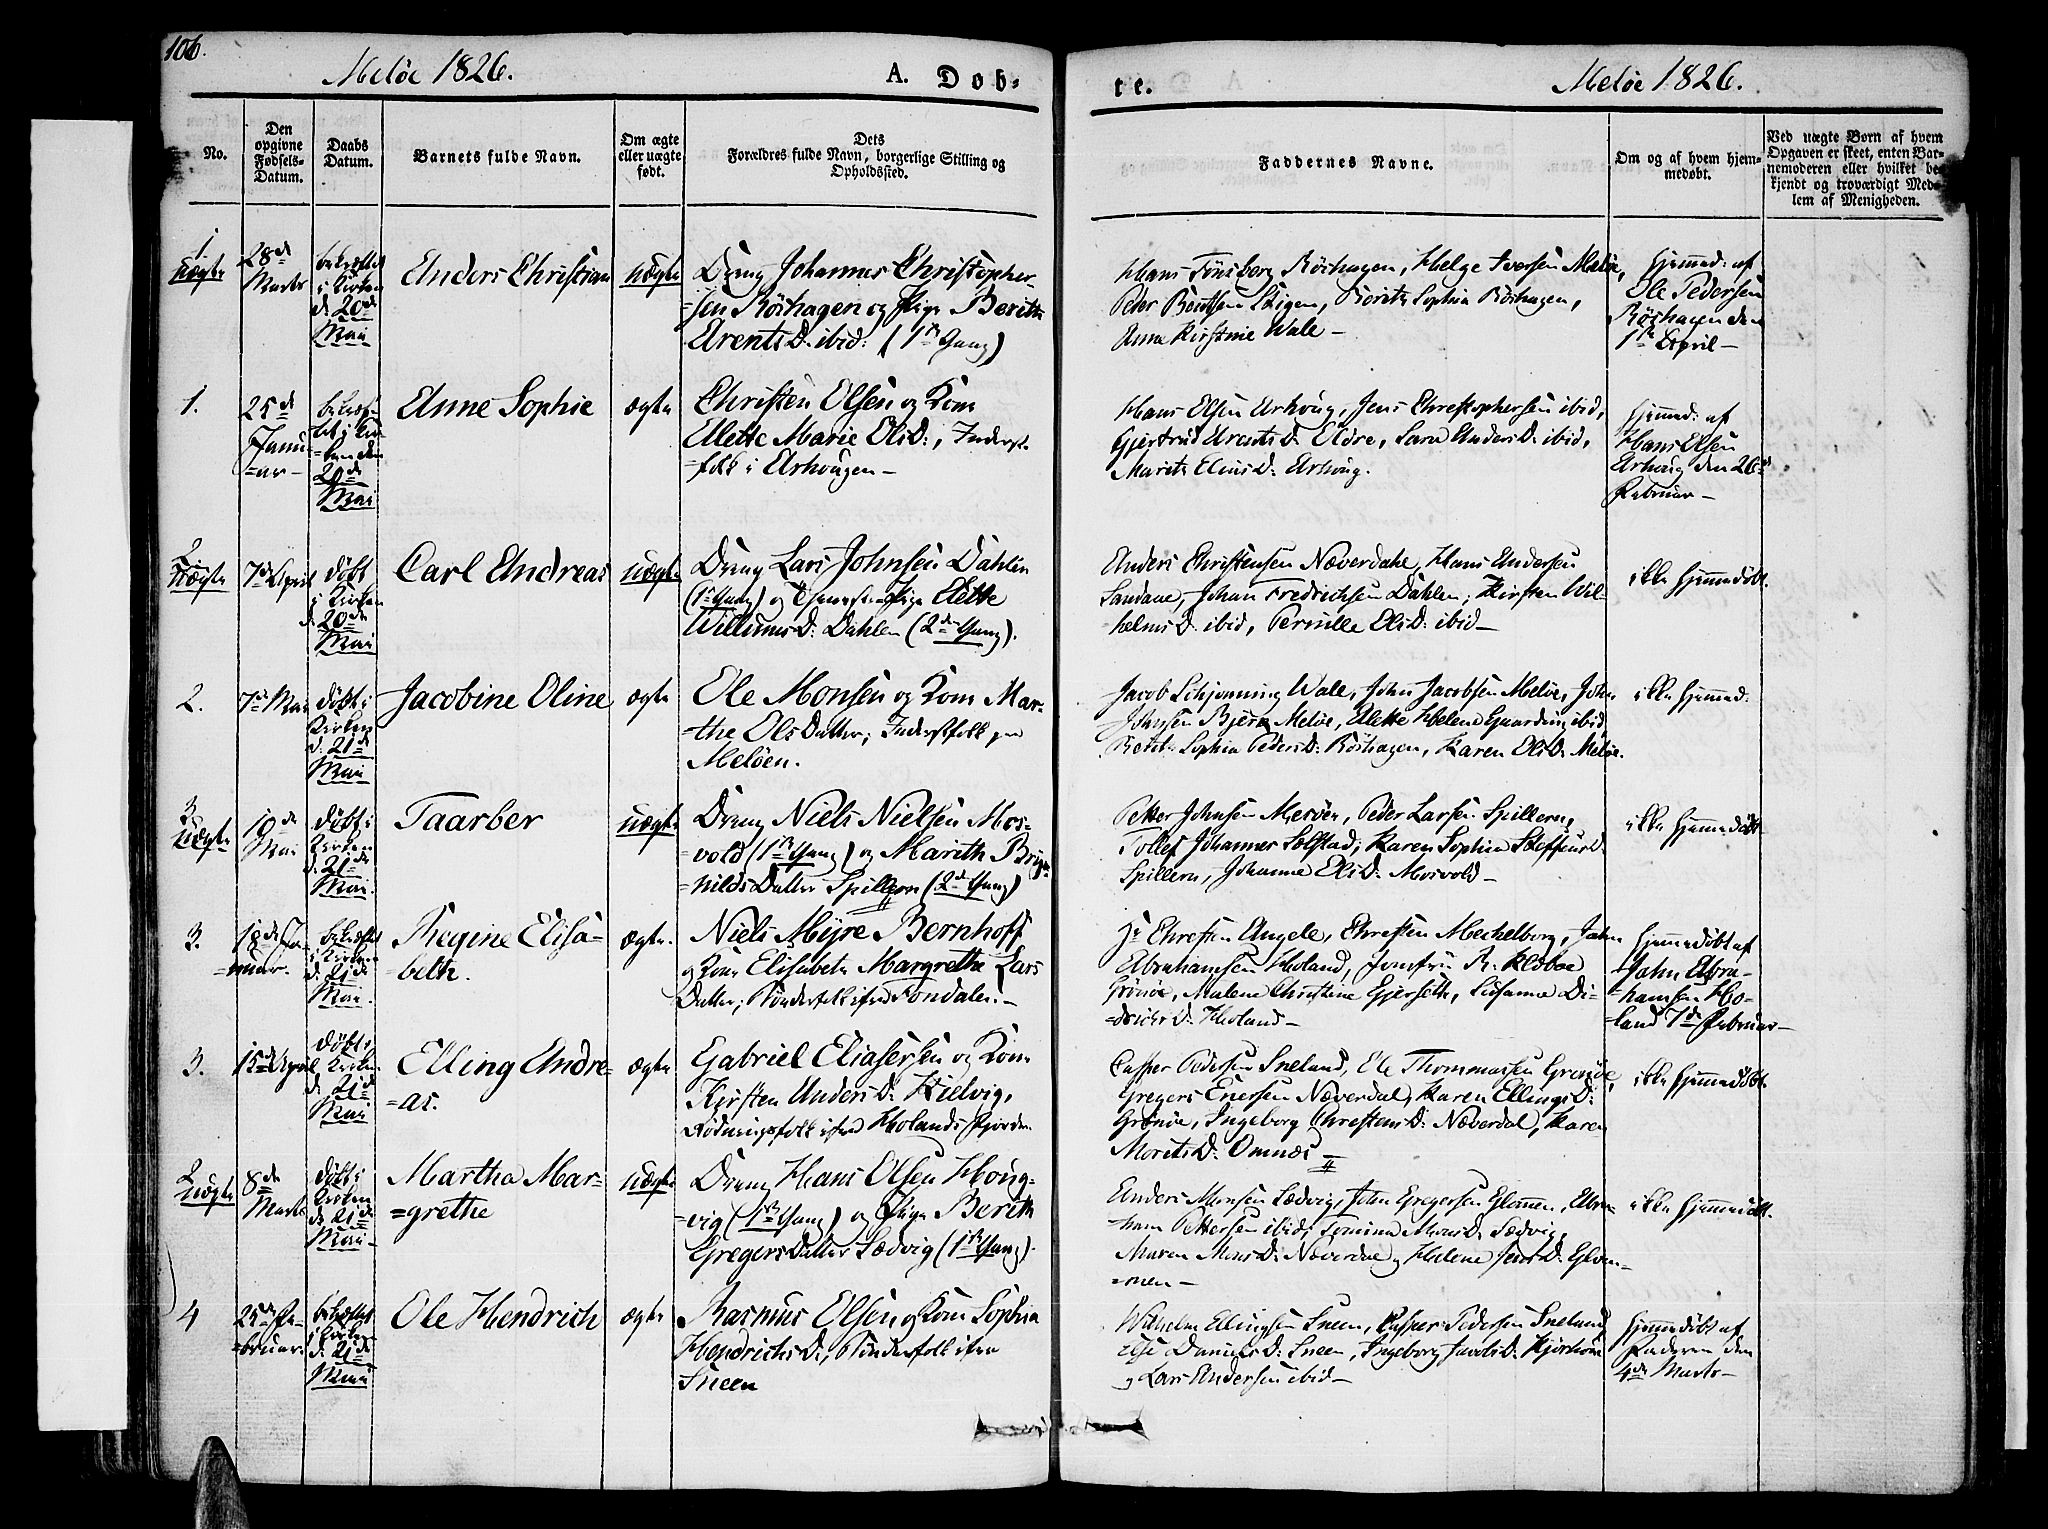 106.
Meløe 1826.
A. Dob-
te.
Meløe 1826.
No.
Den
opgivne
Fødsels-
Datum.
Daabs
Datum.
Barnets fulde Navn.
Om ægte
eller uægte
født.
Dets
Forældres fulde Navn, borgerlige Stilling og
Opholdssted.
Faddernes Navne.
Om og af hvem hjem-
medøbt.
Ved uægte Børn af hvem
Opgaven er skeet, enten Bar-
nemoderen eller hvilket be-
kjendt og troværdigt Med-
lem af Menigheden.
1
uægte
28de
Marts
bekræftet
i Kirken
d. 20de
Mai
Anders Christian
uægte
Dreng Johannes Christopher-
=sen Røshagen og Pige Berith
Arents D. ibid: (1ste Gang)
Hans Tønsberg Røshagen, Helge Iversen Meløe,
Peder Bentsen Skigen, Berith Sophia Røshagen,
Anna Kirstine Wale -
hjemed: af
Ole Pedersen
Røshagen den
1ste April -
1.
25de
Janu-
=ar -
bekræf-
tet i Kir-
ken den
20de
Mai
Anne Sophie
ægte
Christen Olsen og Kone
Elette Marie Ols D:, Inderst-
=folk i Arhougen -
Hans Olsen Arhoug, Jens Christophersen ibid,
Gjertrud Arents D. Eldre, Sara Anders D. ibid,
Marith Elias D. Arhoug.
hjemed: af
Hans Olsen
Arhoug den 26de
Februar -
2
uægte
7de April
døbt
i Kirken
d. 20de
Mai
Carl Andreas
uægte
Dreng Lars Johnsen Dahlen
(1ste Gang) og Pige Elette
Willums D: Dahlen (2den Gang).
Anders Christensen Næverdahl, Hans Andersen
Sandaae, Johan Fredrichsen Dahlen, Kirsten Wil-
helms D. ibid, Pernille Ols D: ibid -
ikke hjemmedøbt.
2.
7de Mai
døbt i
Kirken
d. 21de
Mai
Jacobine Oline
ægte
Ole Monsen og Kone Mar-
=the Ols Datter, Inderstfolk paa
Meløen.
Jacob Schjønning Wale, John Jacobsen Meløe, John
Johnsen Bjerg Meløe, Elette Helene Gaarding ibid,
Berith Sophia Peders D: Røshagen, Karen Ols D: Meløe.
ikke hjemed:
3
uægte
10de
Mai
døbt i
Kirken
d. 21de
Mai.
Taarber
uægte
Dreng Niels Nielsen Mos-
=vold (1ste Gang) og Marith Bryn-
=hilds Datter Spilleren (2den Gang)
Petter Johnsen Mesøen, Peder Larsen Spilleren,
Tollef Johannes Solstad, Karen Sophia Steffens D.
Spilleren, Johanna Ols D: Mosvold -
ikke hjemmedøbt
3.
18de Ja-
=nuar.
bekræftet
i Kirken
d. 21de
Mai.
Regine Elisa-
beth.
ægte.
Niels Myre Bernhoff
og Kone Elisabeth Margrethe Lars
Datter, Bønderfolk ifra Fondalen. -
Hr Christen Angele, Christen Mechelborg, John
Abrahamsen Holand, Jomfru R. Kildboe
Grønøe, Malene Christine Gjersetk, Susanna Di-
=drichs D. Holand -
hjemmedøbt af
John Abra-
=hamsen Ho-
=land 7de Februar -
3.
15de April
døbt i
Kirken
d. 21de
Mai
Elling Andre-
=as.
ægte
Gabriel Eliasersen og Kone
Kirsten Anders D. Kielvig,
Rødningsfolk ifra Holands Fjorden
Casper Pedersen Sneland, Ole Thommassen Grønøe,
Gregers Enersen Næverdal, Karen Ellings D:
Grønøe, Ingeborg Christens D: Næverdal, Karen
Morits D: Omnæs
ikke hjemmedøbt.
2
uægte
8de
Marts
døbt i
Kirken
d. 21de
Mai -
Martha Mar-
=grethe
uægte
Dreng Hans Olsen Houg-
=vig (1ste Gang) og Pige Berith
Gregers Datter Sædvig (1ste Gang).
Anders Monsen Sædvig, John Gregersen Glomen, Abra-
=ham Pettersen ibid, Mons D. Sædvig,
Maren Mons D: Næverdal, Helene Jens D: Glom-
=men -
ikke hjemmedøbt.
4
25de Fe-
=bruar.
bekræftet
i Kirken
d. 21de
Mai
Ole Hendrich
ægte
Rasmus Olsen og Kone Sophia
Hendrichs D:, Bønderfolk ifra
Sneen
Wilhelm Ellingsen Sneen, Casper Pedersen Sneland,
Else Daniels D: Sneen, Ingeborg Jacobs D: Kjørholm
og Lars Andersen ibid -
hjemmedøbt af
Faderen den
4de Marts -